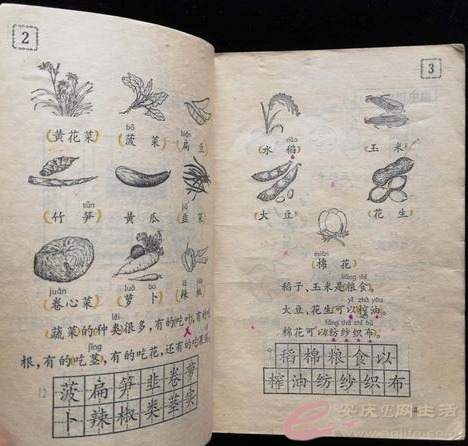 2
bō biǎn
黄花菜 菠菜 扁豆
sǔn jiǔ
竹笋 黄瓜 韭菜
juǎn luó bo là
卷心菜 萝卜 辣椒
蔬菜的种类很多,有的吃叶,有的
jīng
根,有的吃茎,有的吃花,还有的吃果
12
菠扁笋韭卷萝
卜辣椒类茎
3
dào
水稻 玉米
大豆 花生
mián
棉花
liáng shí
稻子、玉米是粮食。
yǐ zhà yóu
大豆、花生可以榨油。
fǎng shā zhī bù
棉花可以纺纱织布。
稻棉粮食以
榨油纺纱织布
安庆E网生活